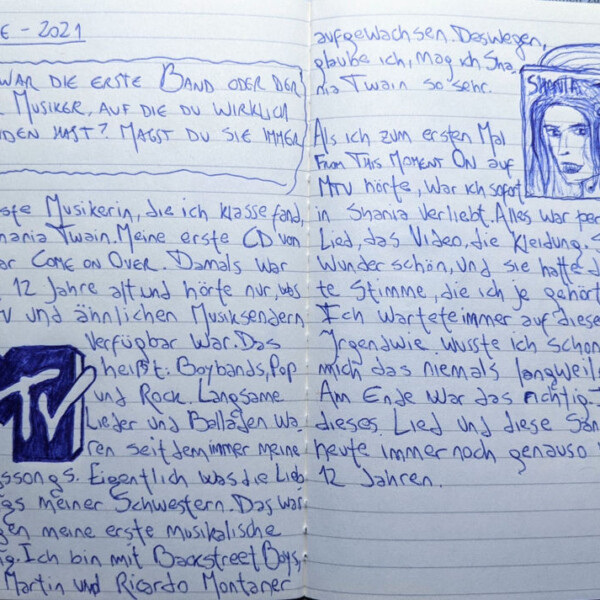 E - 2021
WAR DIE ERSTE BAND ODER DER
MUSIKER, AUF DIE DU WIRKLICH
DEN HAST? MAGST DU SIE IMMER
ste Musikerin, die ich klasse fand,
hania Twain. Meine erste CD von
ar COME ON OVER. Damals war
12 Jahre alt und hörte nur, was
TV und ähnlichen Musiksendern
verfügbar war. Das
heißt: Boybands, Pop
und Rock. Langsame
Lieder und Balladen wa-
ren seitdem immer meine
MTV
ssongs. Eigentlich was die Lieb
gs meiner Schwestern. Das war
gen meine erste musikalische
ig. Ich bin mit Backstreet Boys,
Martin und Ricardo Montaner
aufgewachsen. Deswegen,
glaube ich, mag ich Sha-
nia Twain so sehr.
SHANIA
Als ich zum ersten Mal
FROM THIS MOMENT ON auf
MTV hörte, war ich sofort
in Shania verliebt. Alles war per
Lied, das Video, die Kleidung. S
wunderschön, und sie hatte d
te Stimme, die ich je gehört
Ich wartete immer auf diese
Irgendwie wusste ich schon
mich das niemals langweil
Am Ende war das richtig. I
dieses Lied und diese Sän
heute immer noch genauso
12 Jahren.